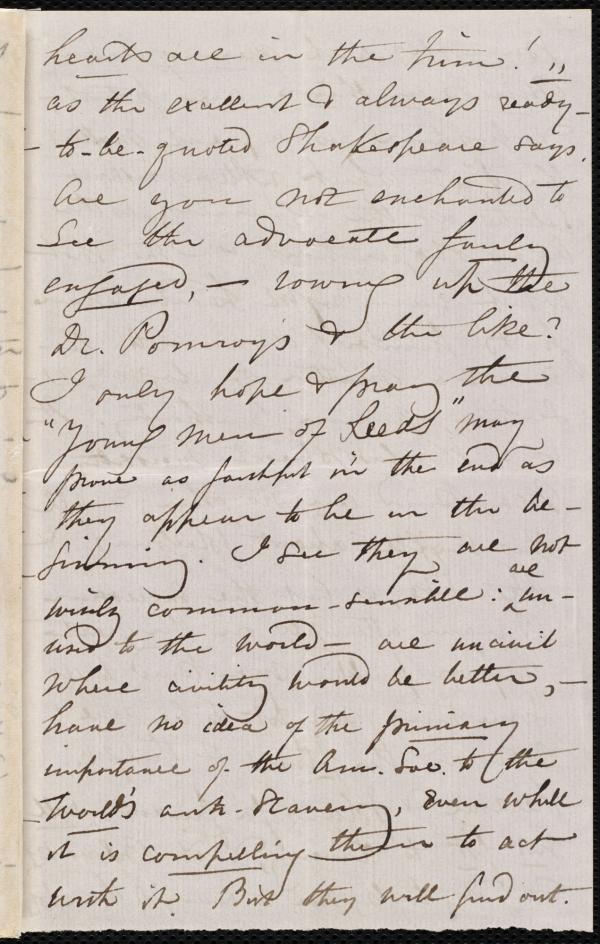 hearts are in the trim!"
as the excellent & always ready-
-to-be-quoted Shakespeare says.
Are you not enchanted to
see the advocate fairly
engaged, — rowing up the
Dr. Pomroys & the like?
I only hope & pray the
"Young men of Leeds" may
prove as faithful in the end as
they appear to be in the be-
-ginning. I see they are not
wisely common-sensible: are un-
used to the world — are uncivil
where civility would be better, —
have no idea of the primary
importance of the Am. Soc. to the
World's anti-Slavery, even while
it is compelling them to act
with it. But they will find out.